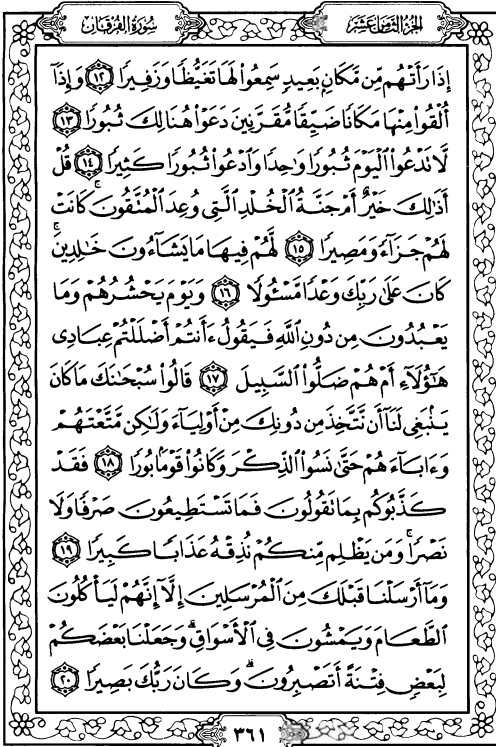 سُورَةُ الفُرْقَانِ
الجُزْءُ الثَّامِنَ عَشَرَ
إِذَا رَأَتْهُم مِّن مَّكَانٍ بَعِيدٍ سَمِعُوا۟ لَهَا تَغَيُّظًا وَزَفِيرًا ١٢ وَإِذَآ
أُلْقُوا۟ مِنْهَا مَكَانًا ضَيِّقًا مُّقَرَّنِينَ دَعَوْا۟ هُنَالِكَ ثُبُورًا ١٣
لَّا تَدْعُوا۟ ٱلْيَوْمَ ثُبُورًا وَٰحِدًا وَٱدْعُوا۟ ثُبُورًا كَثِيرًا ١٤ قُلْ
أَذَٰلِكَ خَيْرٌ أَمْ جَنَّةُ ٱلْخُلْدِ ٱلَّتِى وُعِدَ ٱلْمُتَّقُونَ ۚ كَانَتْ
لَهُمْ جَزَآءً وَمَصِيرًا ١٥ لَّهُمْ فِيهَا مَا يَشَآءُونَ خَٰلِدِينَ ۚ
كَانَ عَلَىٰ رَبِّكَ وَعْدًا مَّسْـُٔولًا ١٦ وَيَوْمَ يَحْشُرُهُمْ وَمَا
يَعْبُدُونَ مِن دُونِ ٱللَّهِ فَيَقُولُ ءَأَنتُمْ أَضْلَلْتُمْ عِبَادِى
هَٰٓؤُلَآءِ أَمْ هُمْ ضَلُّوا۟ ٱلسَّبِيلَ ١٧ قَالُوا۟ سُبْحَٰنَكَ مَا كَانَ
يَنۢبَغِى لَنَآ أَن نَّتَّخِذَ مِن دُونِكَ مِنْ أَوْلِيَآءَ وَلَٰكِن مَّتَّعْتَهُمْ
وَءَابَآءَهُمْ حَتَّىٰ نَسُوا۟ ٱلذِّكْرَ وَكَانُوا۟ قَوْمًۢا بُورًا ١٨ فَقَدْ
كَذَّبُوكُم بِمَا تَقُولُونَ فَمَا تَسْتَطِيعُونَ صَرْفًا وَلَا
نَصْرًا ۚ وَمَن يَظْلِم مِّنكُمْ نُذِقْهُ عَذَابًا كَبِيرًا ١٩
وَمَآ أَرْسَلْنَا قَبْلَكَ مِنَ ٱلْمُرْسَلِينَ إِلَّآ إِنَّهُمْ لَيَأْكُلُونَ
ٱلطَّعَامَ وَيَمْشُونَ فِى ٱلْأَسْوَاقِ ۗ وَجَعَلْنَا بَعْضَكُمْ
لِبَعْضٍ فِتْنَةً أَتَصْبِرُونَ ۗ وَكَانَ رَبُّكَ بَصِيرًا ٢٠
٣٦١